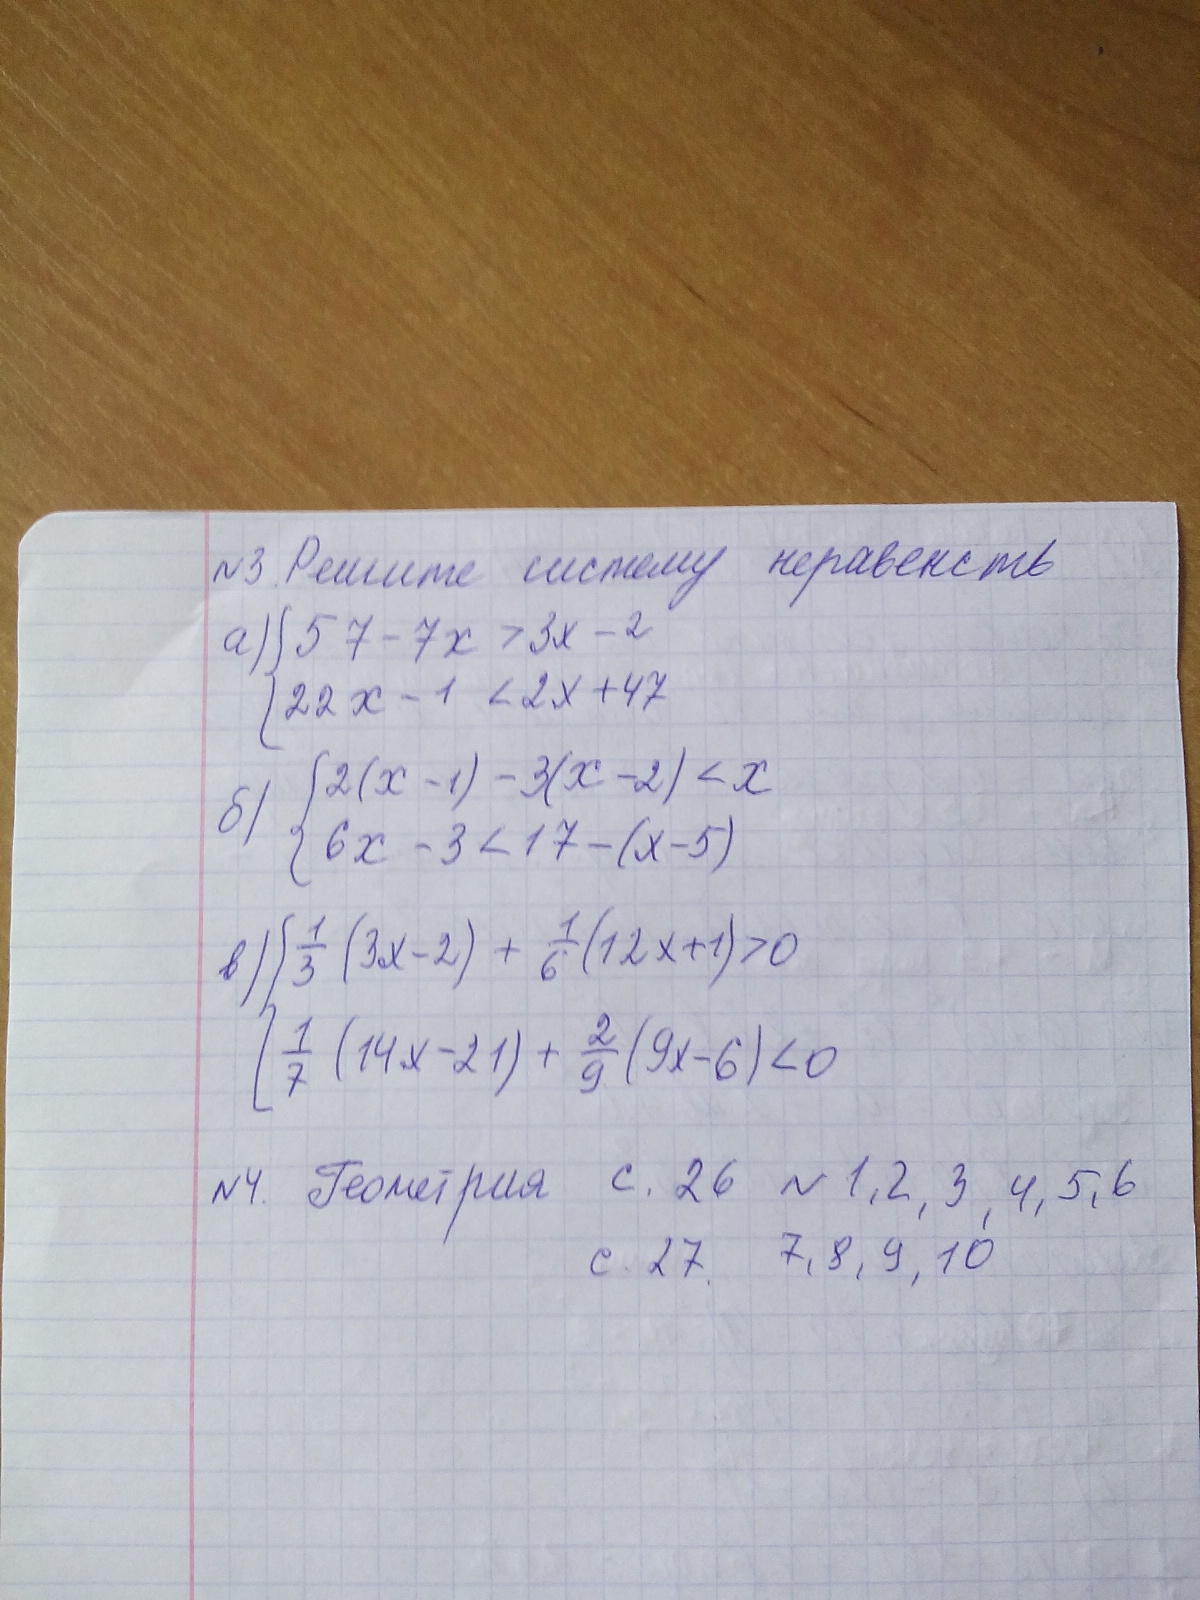 №3. Решите систему неравенств
а) { 57 - 7x > 3x - 2
22x - 1 < 2x + 47
б) { 2(x - 1) - 3(x - 2) < x
6x - 3 < 17 - (x - 5)
в) { 1/3 (3x - 2) + 1/6 (12x + 1) > 0
1/7 (14x - 21) + 2/9 (9x - 6) < 0
№4. Геометрия с. 26 № 1, 2, 3, 4, 5, 6
с. 27. 7, 8, 9, 10